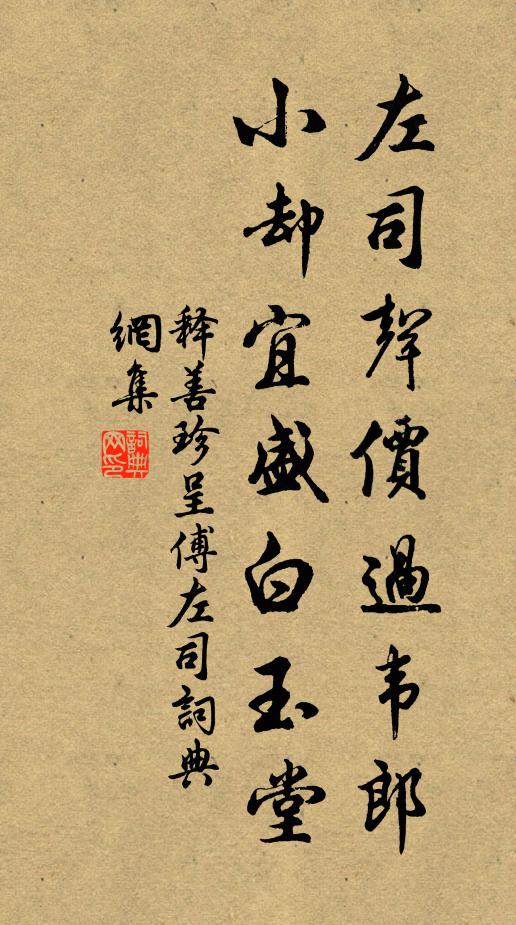 左司聲價過韦郎
小却宜盛白玉堂
释善珍呈傅左司詞典
網集
詞典
网印